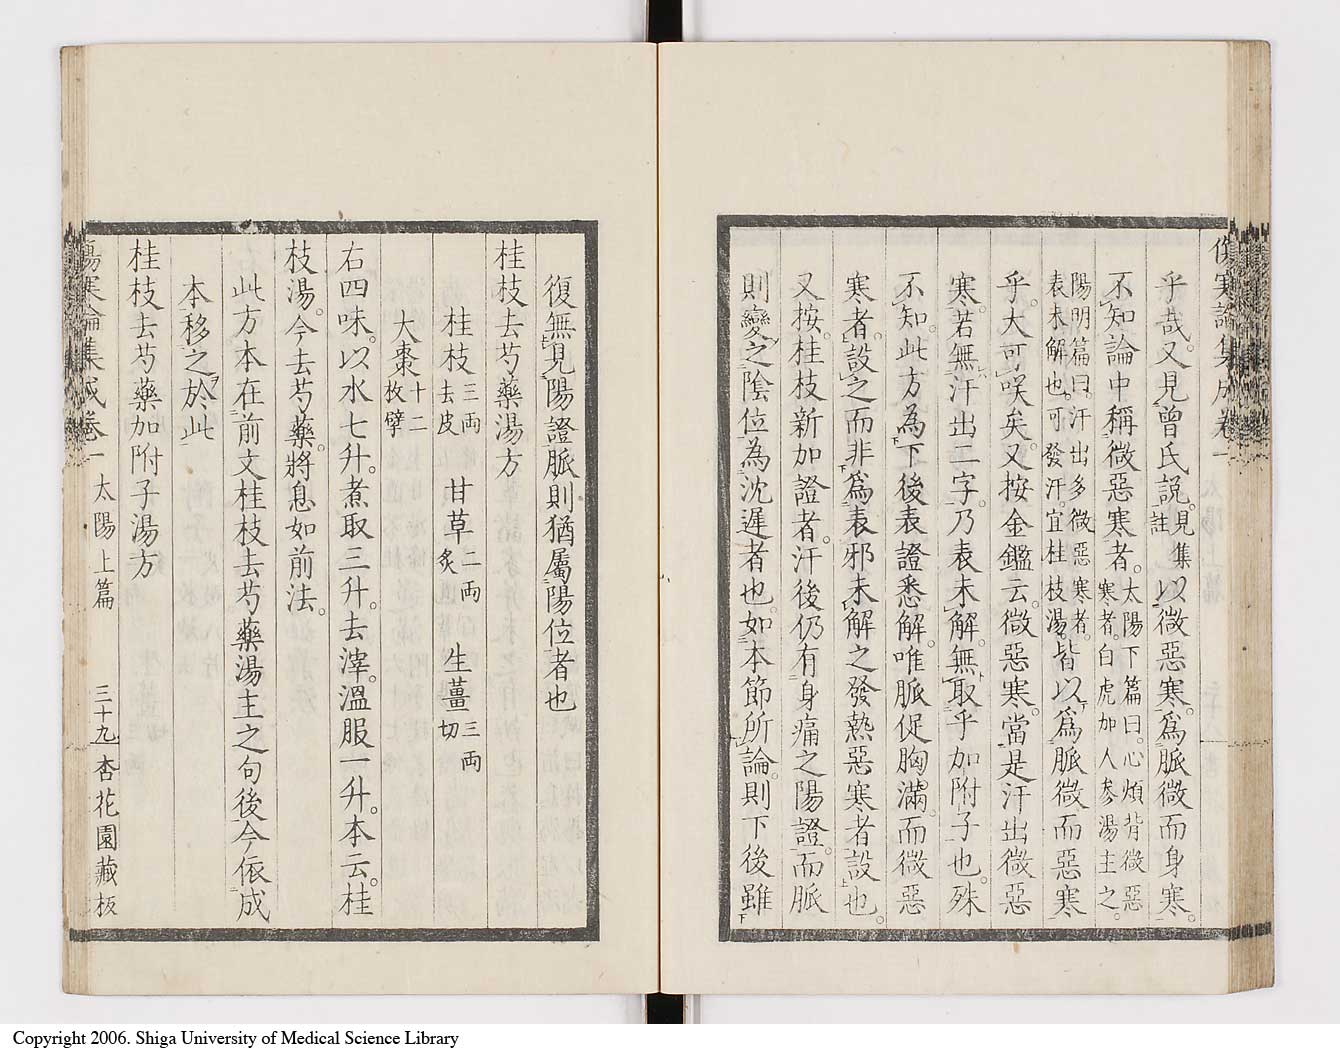 傷寒論集成卷一
乎哉。又見曾氏説。見集註以微惡寒。爲脈微而身寒。
不知論中稱微惡寒者。太陽下篇曰。心煩背微惡寒者。白虎加人參湯主之。
陽明篇曰。汗出多微惡寒者。表未解也。可發汗。宜桂枝湯。皆以爲脈微而惡寒
乎。大可咲矣。又按金鑑云。微惡寒。當是汗出微惡
寒。若無汗出二字。乃表未解。無取乎加附子也。殊
不知。此方為下後表證悉解。唯脈促胸滿。而微惡
寒者。設之而非爲表邪未解之發熱惡寒者設也。
又按。桂枝新加證者。汗後仍有身痛之陽證。而脈
則變之陰位為沈遲者也。如本節所論。則下後雖
復無見陽證脈則猶屬陽位者也
桂枝去芍藥湯方
桂枝三両去皮 甘草二両炙 生薑三両切
大棗十二枚擘
右四味。以水七升。煮取三升。去滓。溫服一升。本云。桂
枝湯。今去芍藥。將息如前法。
此方本在前文桂枝去芍藥湯主之句後今依成
本移之於此
桂枝去芍藥加附子湯方
傷寒論集成卷一 太陽上篇 三十九 杏花園藏板
Copyright 2006. Shiga University of Medical Science Library